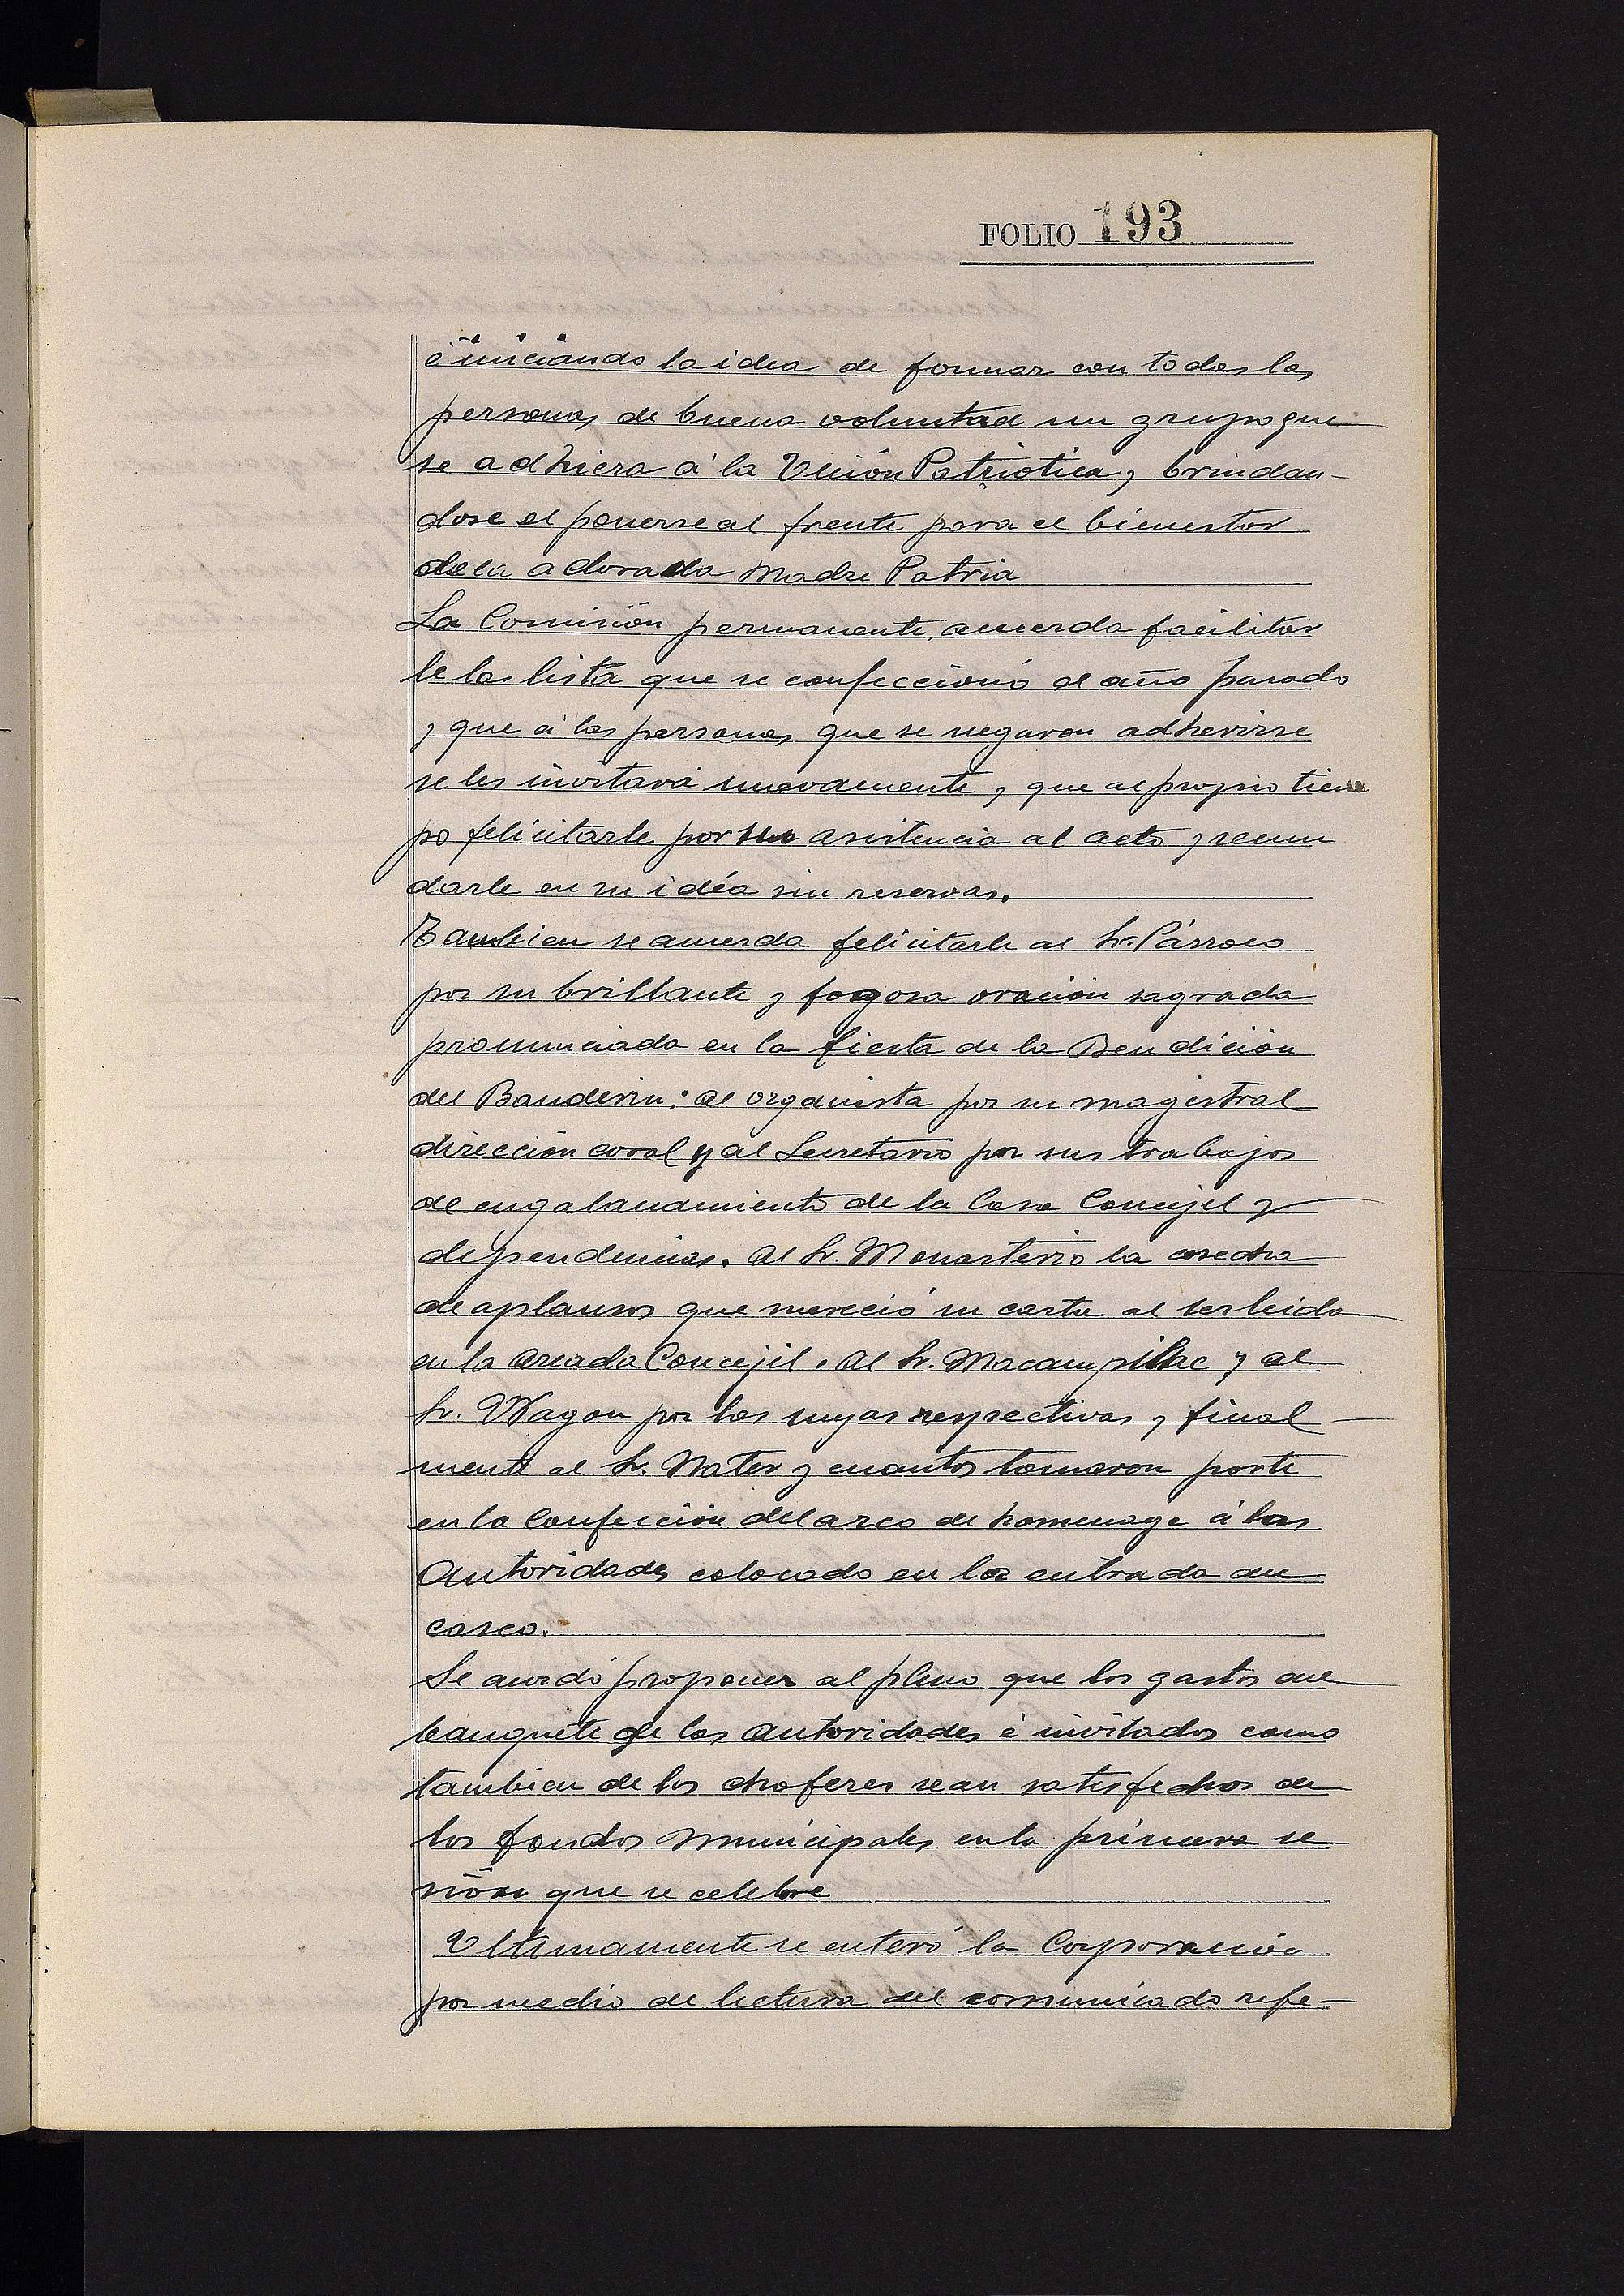 FOLIO 193
é iniciando la idea de formar con todas las
personas de buena voluntad un grupo que
se adhiera á la Unión Patriotica, brindan-
dose el ponerse al frente para el bienestar
de la adorada Madre Patria
La Comisión permanente, acuerda facilitar
le las lista que se confeccionó el año pasado
y que á las personas que se negaron adherirse
se les invitará nuevamente, y que al propio tiem
po felicitarle por su asistencia al acto y secun
darle en su idéa sin reservas.
Tambien se acuerda felicitarle al Sr. Párroco
por su brillante y fogosa oración sagrada
pronunciada en la fiesta de la Bendición
del Banderin: al organista por su magistral
dirección coral y al Secretario por sus trabajos
de engalanamiento de la Casa Concejil y
dependencias. Al Sr. Monasterio la cosecha
de aplausos que mereció su carta al ser leida
en la arcada Concejil. Al Sr. y al
Sr. Wagon por las suyas respectivas y final-
mente al Sr. Mater y cuantos tomaron parte
en la Confección del arco de homenage á las
Autoridades colocado en la entrada del
casco.
Se acordó proponer al pleno que los gastos del
banquete de las autoridades é invitados como
tambien de los choferes sean satisfechos de
los fondos Municipales en la primera se
sión que se celebre
Ultimamente se enteró la Corporación
por medio de lectura del comunicado refe-